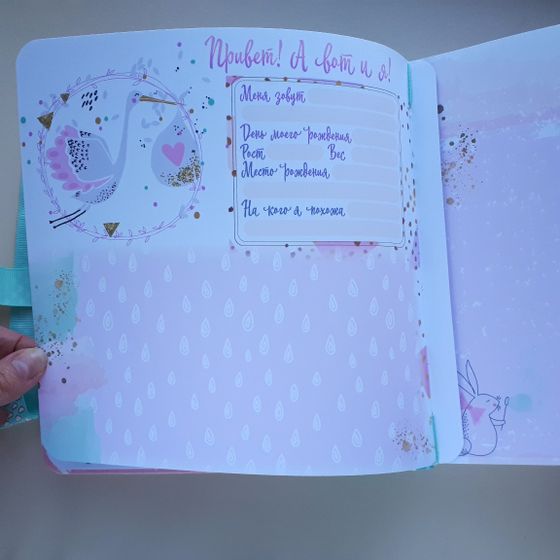 Привет! А вот и я!
Меня зовут
День моего рождения
Рост Вес
Место рождения
На кого я похожа